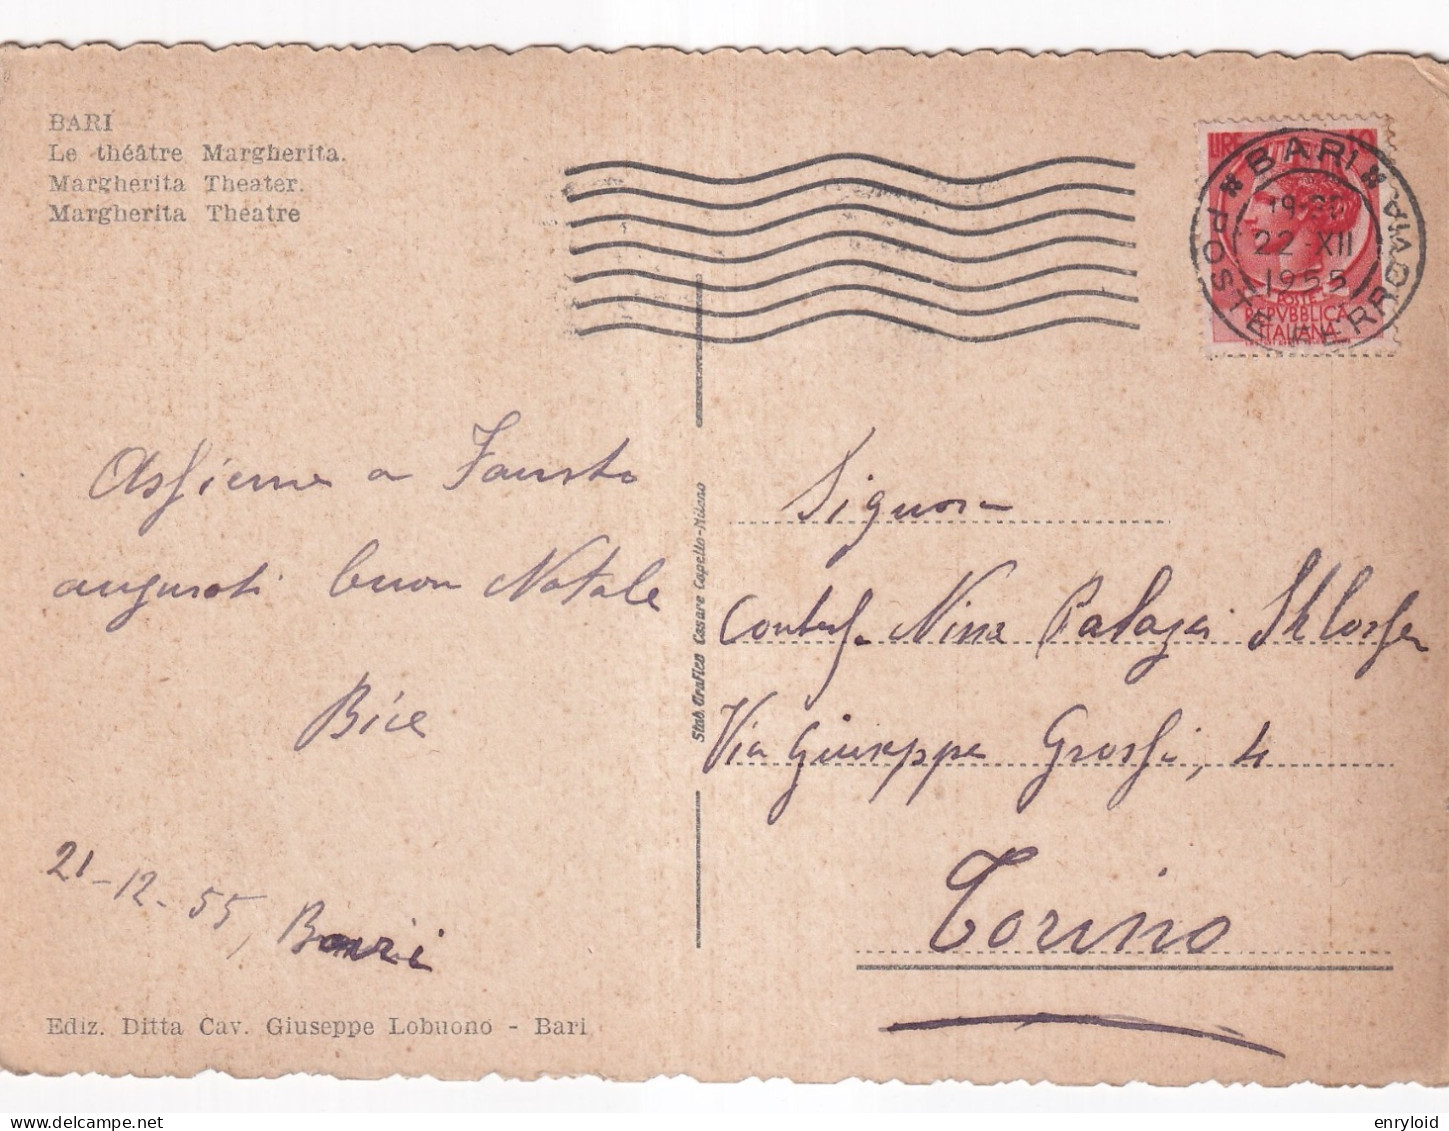 BARI
Le théâtre Margherita.
Margherita Theater.
Margherita Theatre
LIRE 10
BARI
POSTE FERROVIA
19-20
22 XII
1955
POSTE
REPVBBLICA
ITALIANA
Assieme a Fausto
auguroti buon Natale
Bice
21-12-55, Bari
Ediz. Ditta Cav. Giuseppe Lobuono - Bari
Stab. Grafico Cesare Capello-Milano
Signora
Nina
Via Giuseppe Grossi, 4
Torino
enryloid